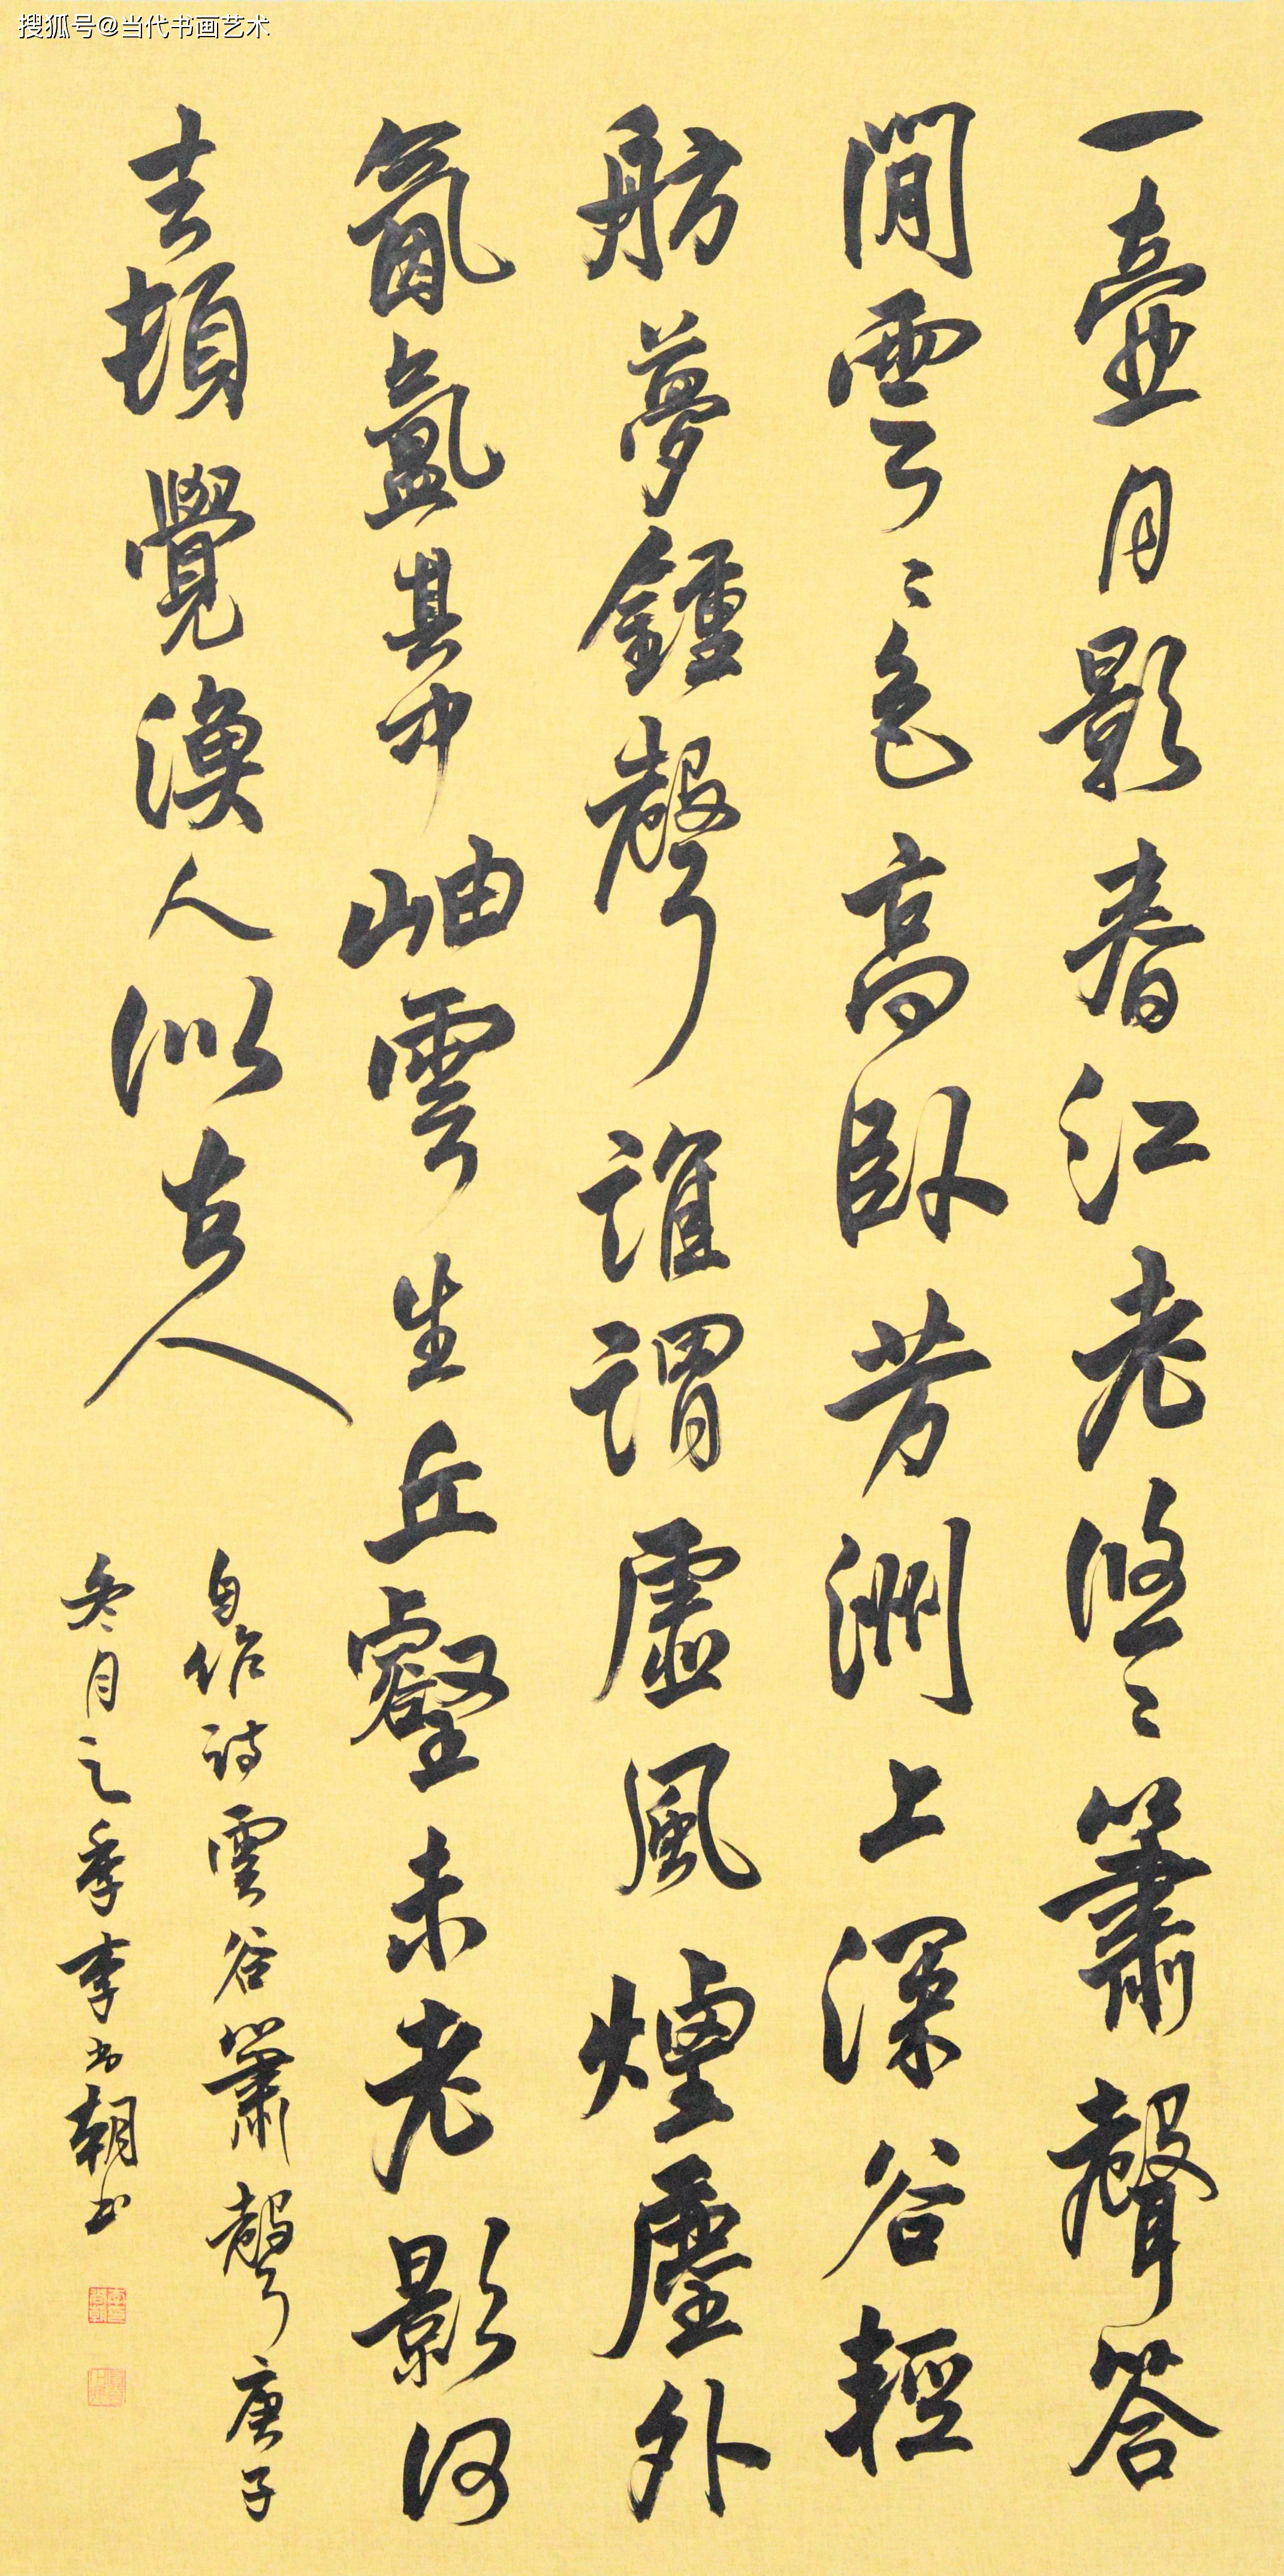 搜狐号@当代书画艺术
一壺月影春江老悠〻簫聲答
閒雲〻色高臥芳洲上深谷輕
舫夢鍾聲誰謂虛風煙塵外
氤氳其中岫雲生丘壑未老影何
去頓覺漁人似古人
自作詩雲谷簫聲庚子
冬月之季李书朝书